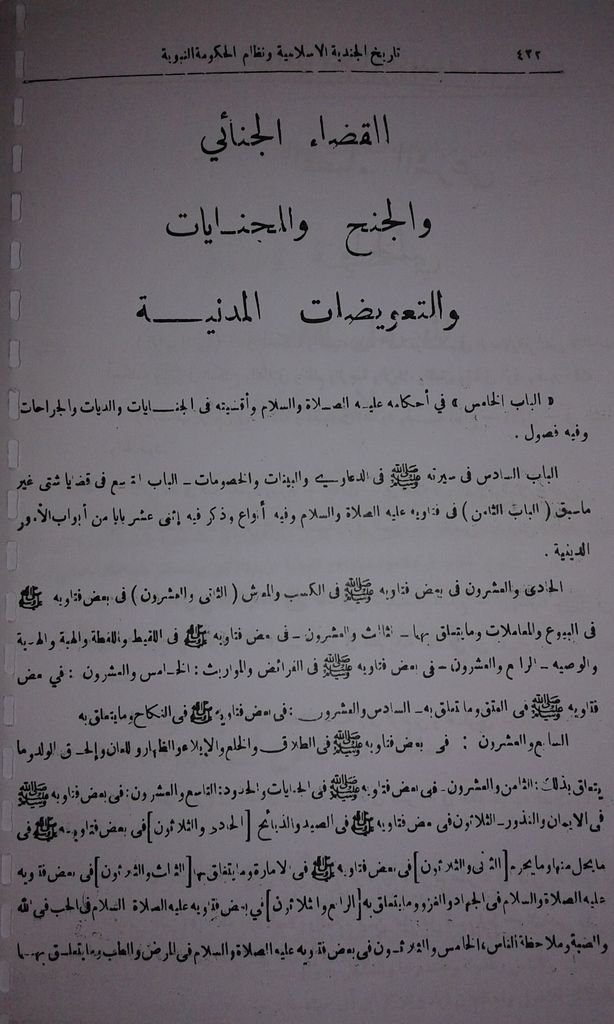 ٤٣٢ تاريخ الجندية الاسلامية ونظام الحكومة النبوية
القضاء الجنائي
والجنح والجنايات
والتعويضات المدنية
« الباب الخامس » في أحكامه عليه الصلاة والسلام وأقضيته فى الجنايات والديات والجراحات
وفيه فصول .
الباب السادس فى سيرته ﷺ فى الدعاوي والبينات والخصومات ـ الباب التاسع فى قضايا شتى غير
ماسبق ( الباب الثامن ) فى فتاويه عليه الصلاة والسلام وفيه أنواع وذكر فيه إثنى عشر بابا من أبواب الأمور
الدينية .
الحادى والعشرون فى بعض فتاويه ﷺ فى الكسب والمعاش ( الثانى والعشرون ) فى بعض فتاويه ﷺ
فى البيوع والمعاملات ومايتعلق بها ـ الثالث والعشرون ـ فى بعض فتاويه ﷺ فى اللقيط واللقطة والهبة والهدية
والوصيه ـ الرابع والعشرون ـ فى بعض فتاويه ﷺ فى الفرائض والمواريث : الخامس والعشرون : في بعض
فتاويه ﷺ فى العتق وما تعلق به ـ السادس والعشرون : فى بعض فتاويه ﷺ فى النكاح ومايتعلق به
السابع والعشرون : فى بعض فتاويه ﷺ فى الطلاق والخلع والايلاء والظهار واللعان وإلحاق الولد وما
يتعاق بذلك : الثامن والعشرون ـ فى بعض فتاويه ﷺ فى الجنايات والحدود : التاسع والعشرون : فى بعض فتاويه ﷺ
فى الايمان والنذور ـ الثلاثون فى بعض فتاويه ﷺ فى الصيد والذبائح [ الحادى والثلاثون ] فى بعض فتاويه ﷺ فى
مايحل منها ومايحرم [ الثانى والثلاثون ] فى بعض فتاويه ﷺ فى الامارة ومايتفاق بها [ الثالث والثلاثون ] فى بعض فتاويه
عليه الصلاة والسلام فى الجهاد والغزو ومايتعلق به [ الرابع والثلاثون ] في بعض فتاويه عليه الصلاة السلام فى الحب فى الله
والضبة وملاحظة الناس، الخامس والثلاثون فى بعض فتاويه عليه الصلاة والسلام فى المرض والطب ومايتعلق بهما